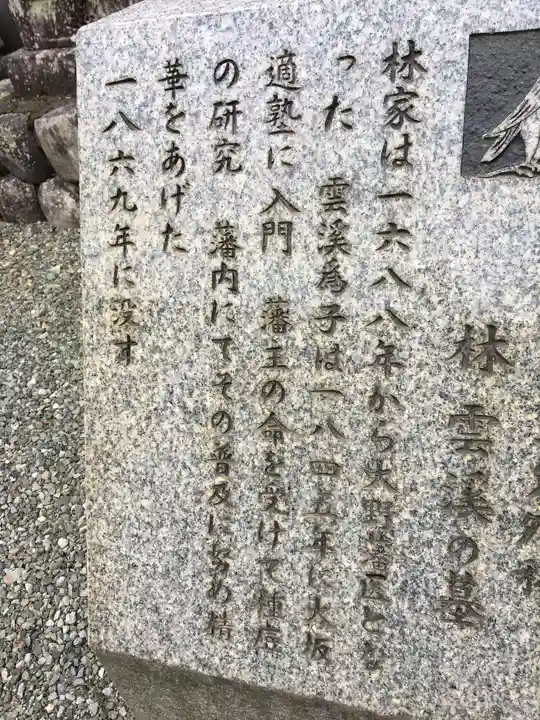 林雲溪の墓
林家は一六八八年から大野藩医とな
った　雲溪為子は一八四五年に大坂
適塾に入門　藩主の命を受けて種痘
の研究　藩内にてその普及に努め精
華をあげた
一八六九年に没す